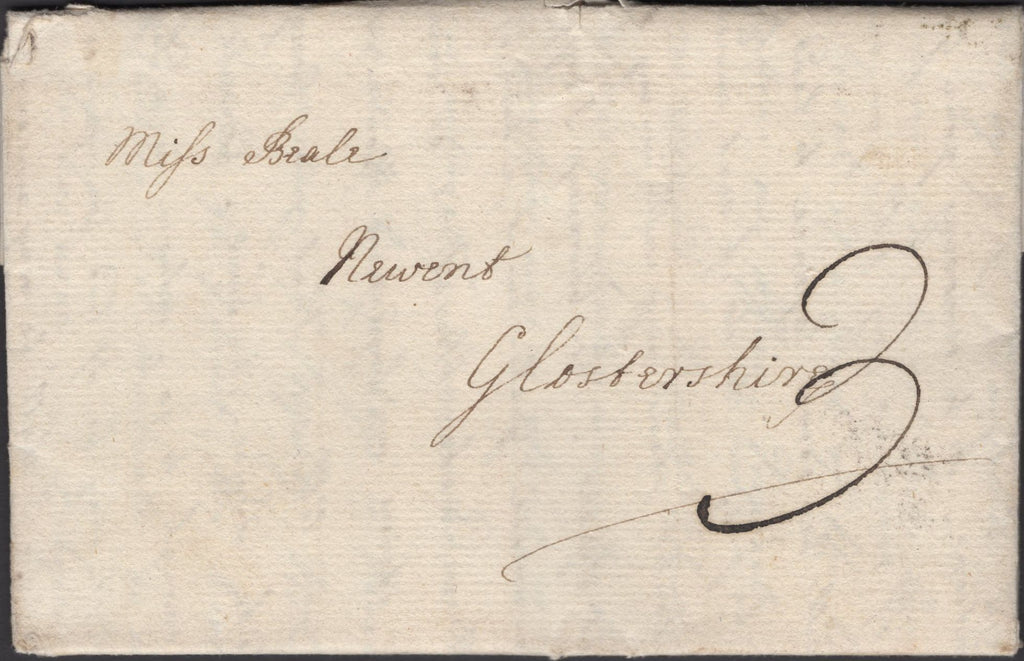 Miſs Beale
Newent
Glostershire
3